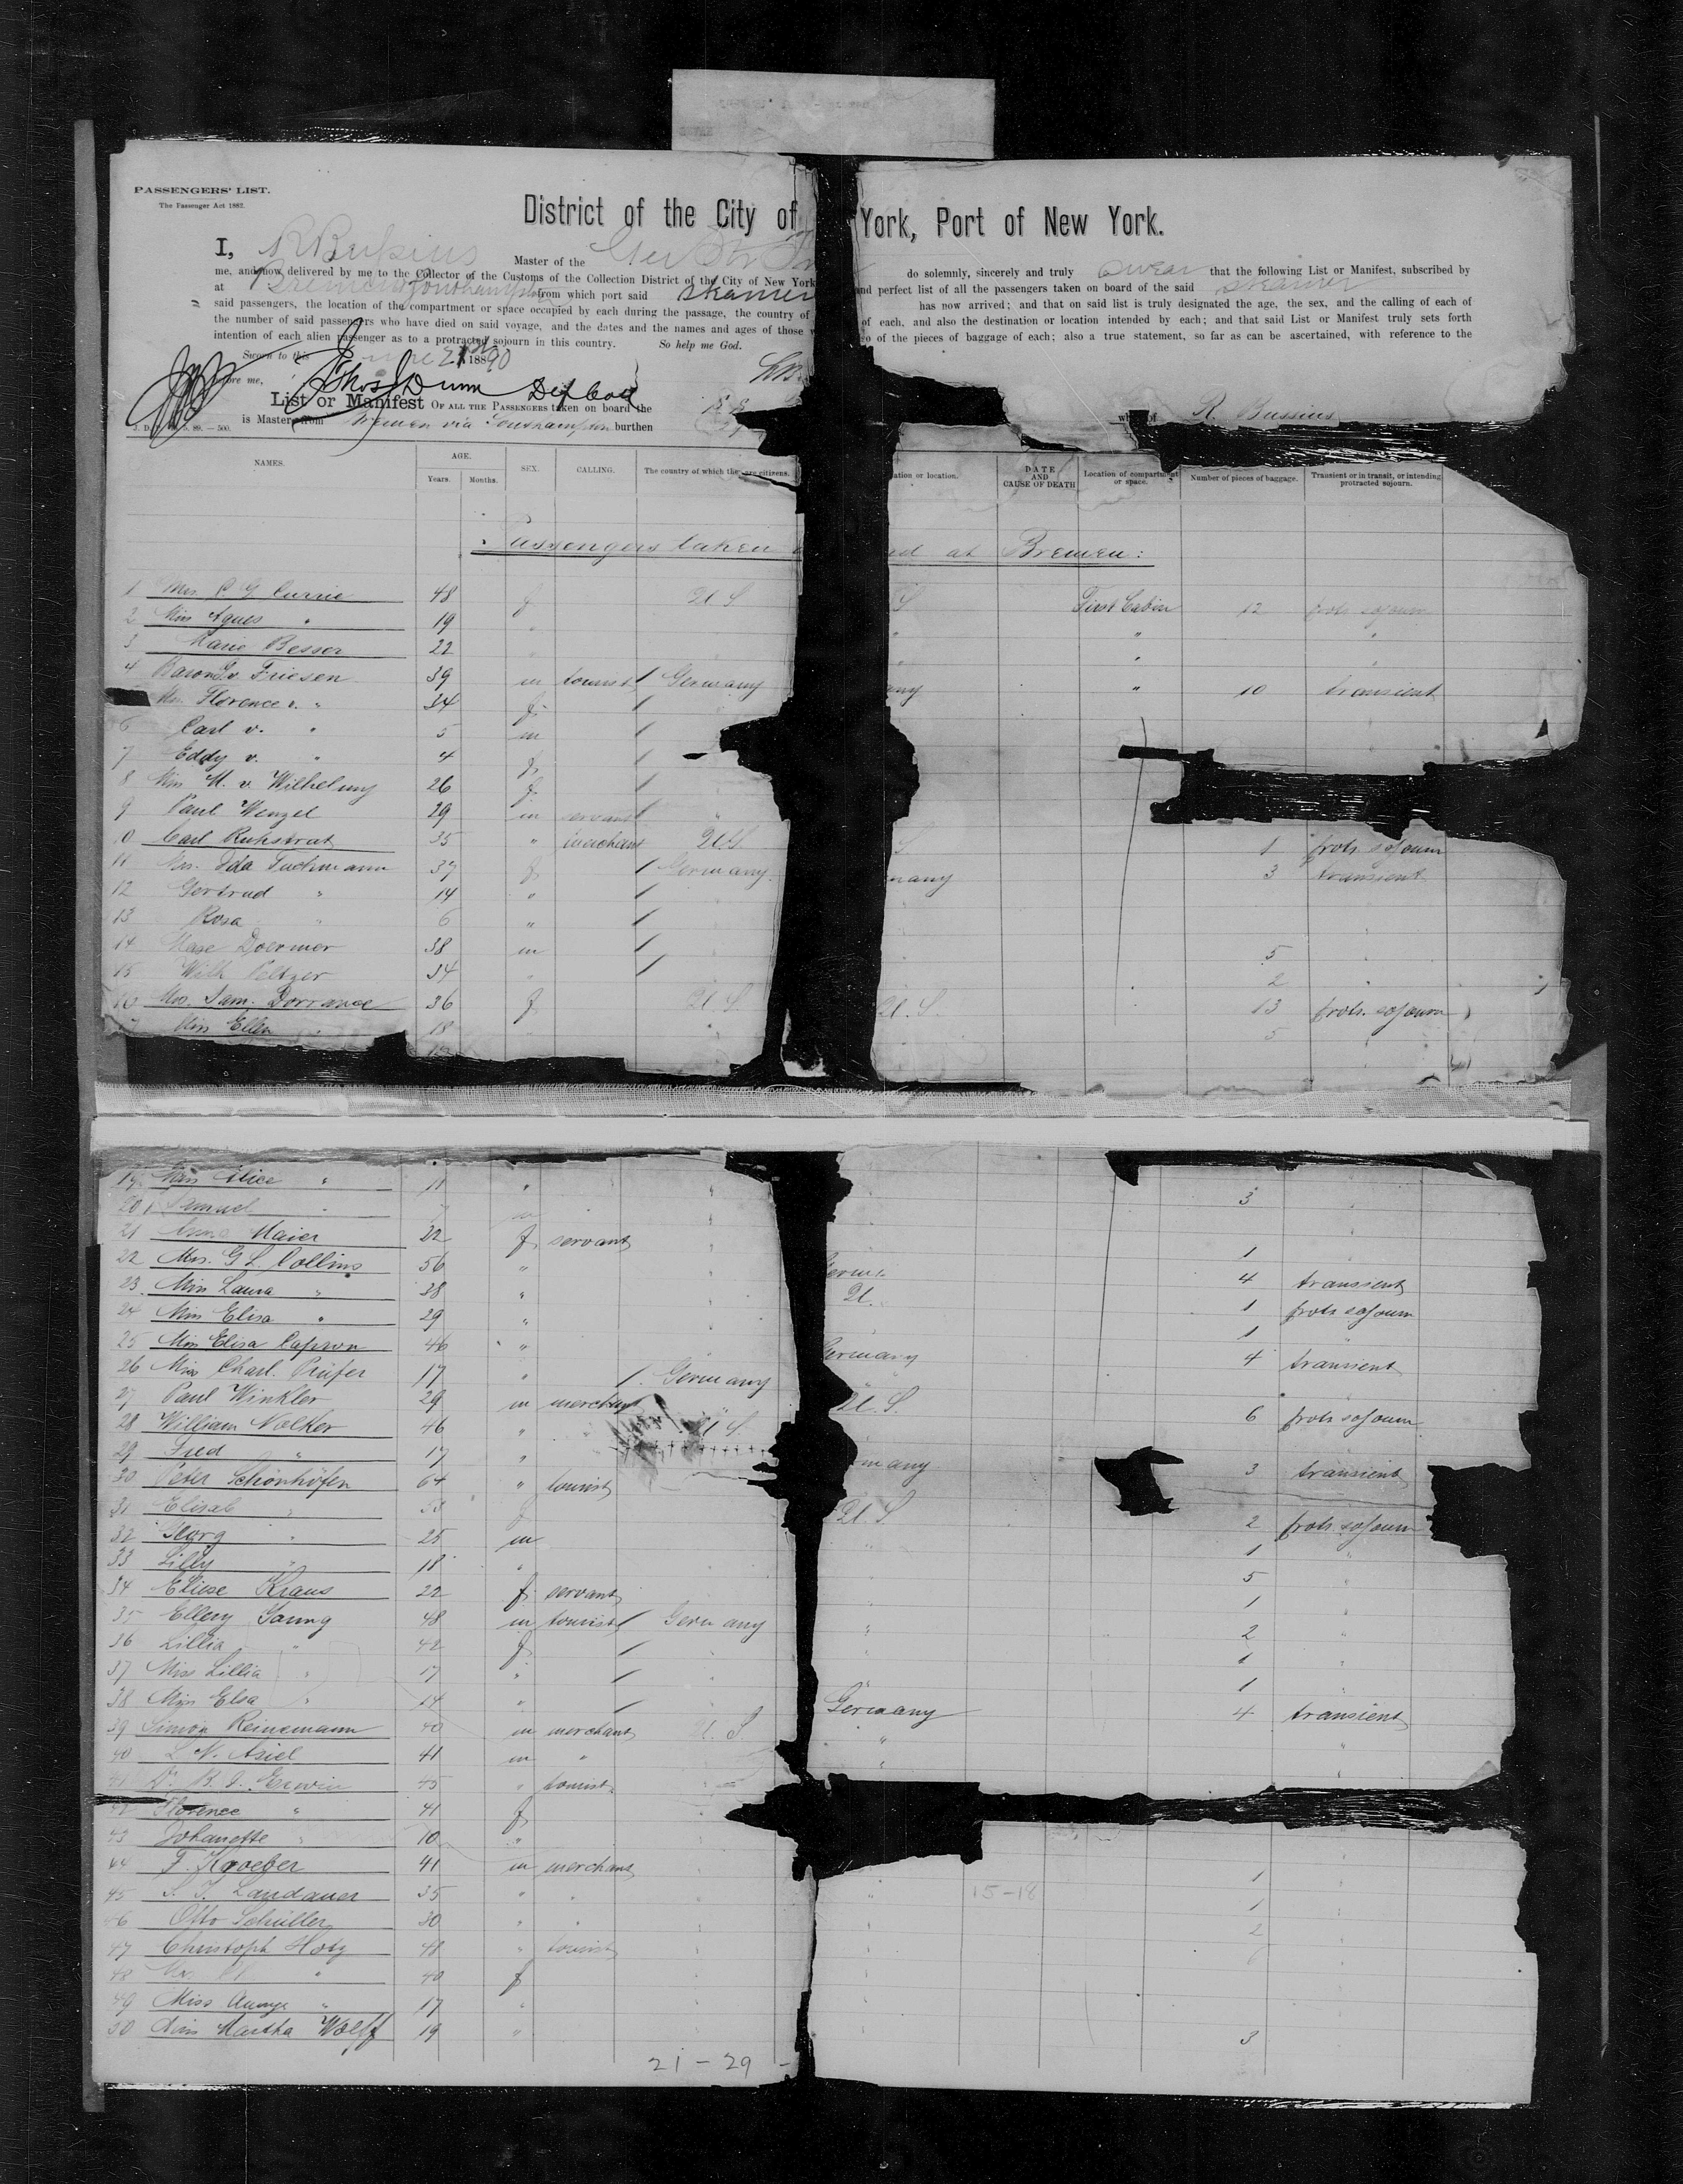 PASSENGERS' LIST.
The Passenger Act 1882.
District of the City of York, Port of New York.
I, R Bussius Master of the do solemnly, sincerely and truly swear that the following List or Manifest, subscribed by
me, and now delivered by me to the Collector of the Customs of the Collection District of the City of New York and perfect list of all the passengers taken on board of the said steamer
at Bremen & Southampton from which port said steamer has now arrived; and that on said list is truly designated the age, the sex, and the calling of each of
said passengers, the location of the compartment or space occupied by each during the passage, the country of of each, and also the destination or location intended by each; and that said List or Manifest truly sets forth
the number of said passengers who have died on said voyage, and the dates and the names and ages of those of the pieces of baggage of each; also a true statement, so far as can be ascertained, with reference to the
intention of each alien passenger as to a protracted sojourn in this country. So help me God.
Sworn to this June 21 1890
before me, Thos J Dunn Dep Coll
List or Manifest OF ALL THE PASSENGERS taken on board the
is Master from Bremen via Southampton burthen of R. Bussius
NAMES. AGE. Years. Months. SEX. CALLING. The country of which they are citizens. ation or location. DATE AND CAUSE OF DEATH Location of compartment or space. Number of pieces of baggage. Transient or in transit, or intending protracted sojourn.
Passengers taken at Bremen:
1 Mrs C G Currie 48 f U S S First Cabin 12 protr. sojourn
2 Miss Agnes " 19 " " " "
3 Marie Besser 22 " " "
4 Baron v. Friesen 39 m tourist / Germany any " 10 transient
Mrs. Florence v. " 34 f /
6 Carl v. " 5 m /
7 Eddy v. " 4 f /
8 Miss M. v. Wilhelmy 26 f /
9 Paul Wenzel 29 m servant / "
10 Carl Ruhstrat 35 " merchant U S S 1 protr. sojourn
11 Mrs. Ida Tuchmann 37 f / Germany many 3 transient
12 Gertrud " 14 " /
13 Rosa " 6 " /
14 Doermer 38 m / 5
15 Wilh Peltzer 34 " / 2
16 Mrs. Sam. Dorrance 36 f U S U. S. 13 protr. sojourn
Miss Ellen " 18 5
19 Miss Alice " 11 " 3
20 Samuel "
21 Anna Maier 22 f servant 1
22 Mrs. G L. Collins 56 " 4 transient
23 Miss Laura " 28 " U. 1 protr sojourn
24 Miss Elisa " 29 " 1
25 Miss Elisa Capron 46 " Germany 4 transient
26 Miss Charl. Prüfer 17 " / Germany
27 Paul Winkler 29 m merchant U. S. 6 protr sojourn
28 William Volker 46 " U S
29 Fred " 17 " many 3 transient
30 Peter Schönhöfen 64 " tourist
31 Elisab " 53 f U S 2 protr. sojourn
32 Georg " 25 m 1
33 Lilly " 18 " 5
34 Eliese Kraus 22 f servant 1
35 Ellery 48 m tourist / Germany 2
36 Lillia " 42 f / 1
37 Miss Lillia " 17 " / 1
38 Miss Elsa " 14 " / Germany 4 transient
39 Simon Reinemann 40 m merchant U. S " "
40 L N. Asiel 41 m " "
41 Dr. B. J. Erwin 45 " tourist
42 Florence " 41 f
43 Johanette " 10 "
44 F. Kroeber 41 m merchant 1
45 S. F. Landauer 35 " " 15-18 1
46 Otto Schüller 30 " " 2
47 Christoph Hotz 48 " tourist
48 Mrs. " 40 f
49 Miss " 17 "
50 Miss Martha Wolff 19 " 3
21-29 -